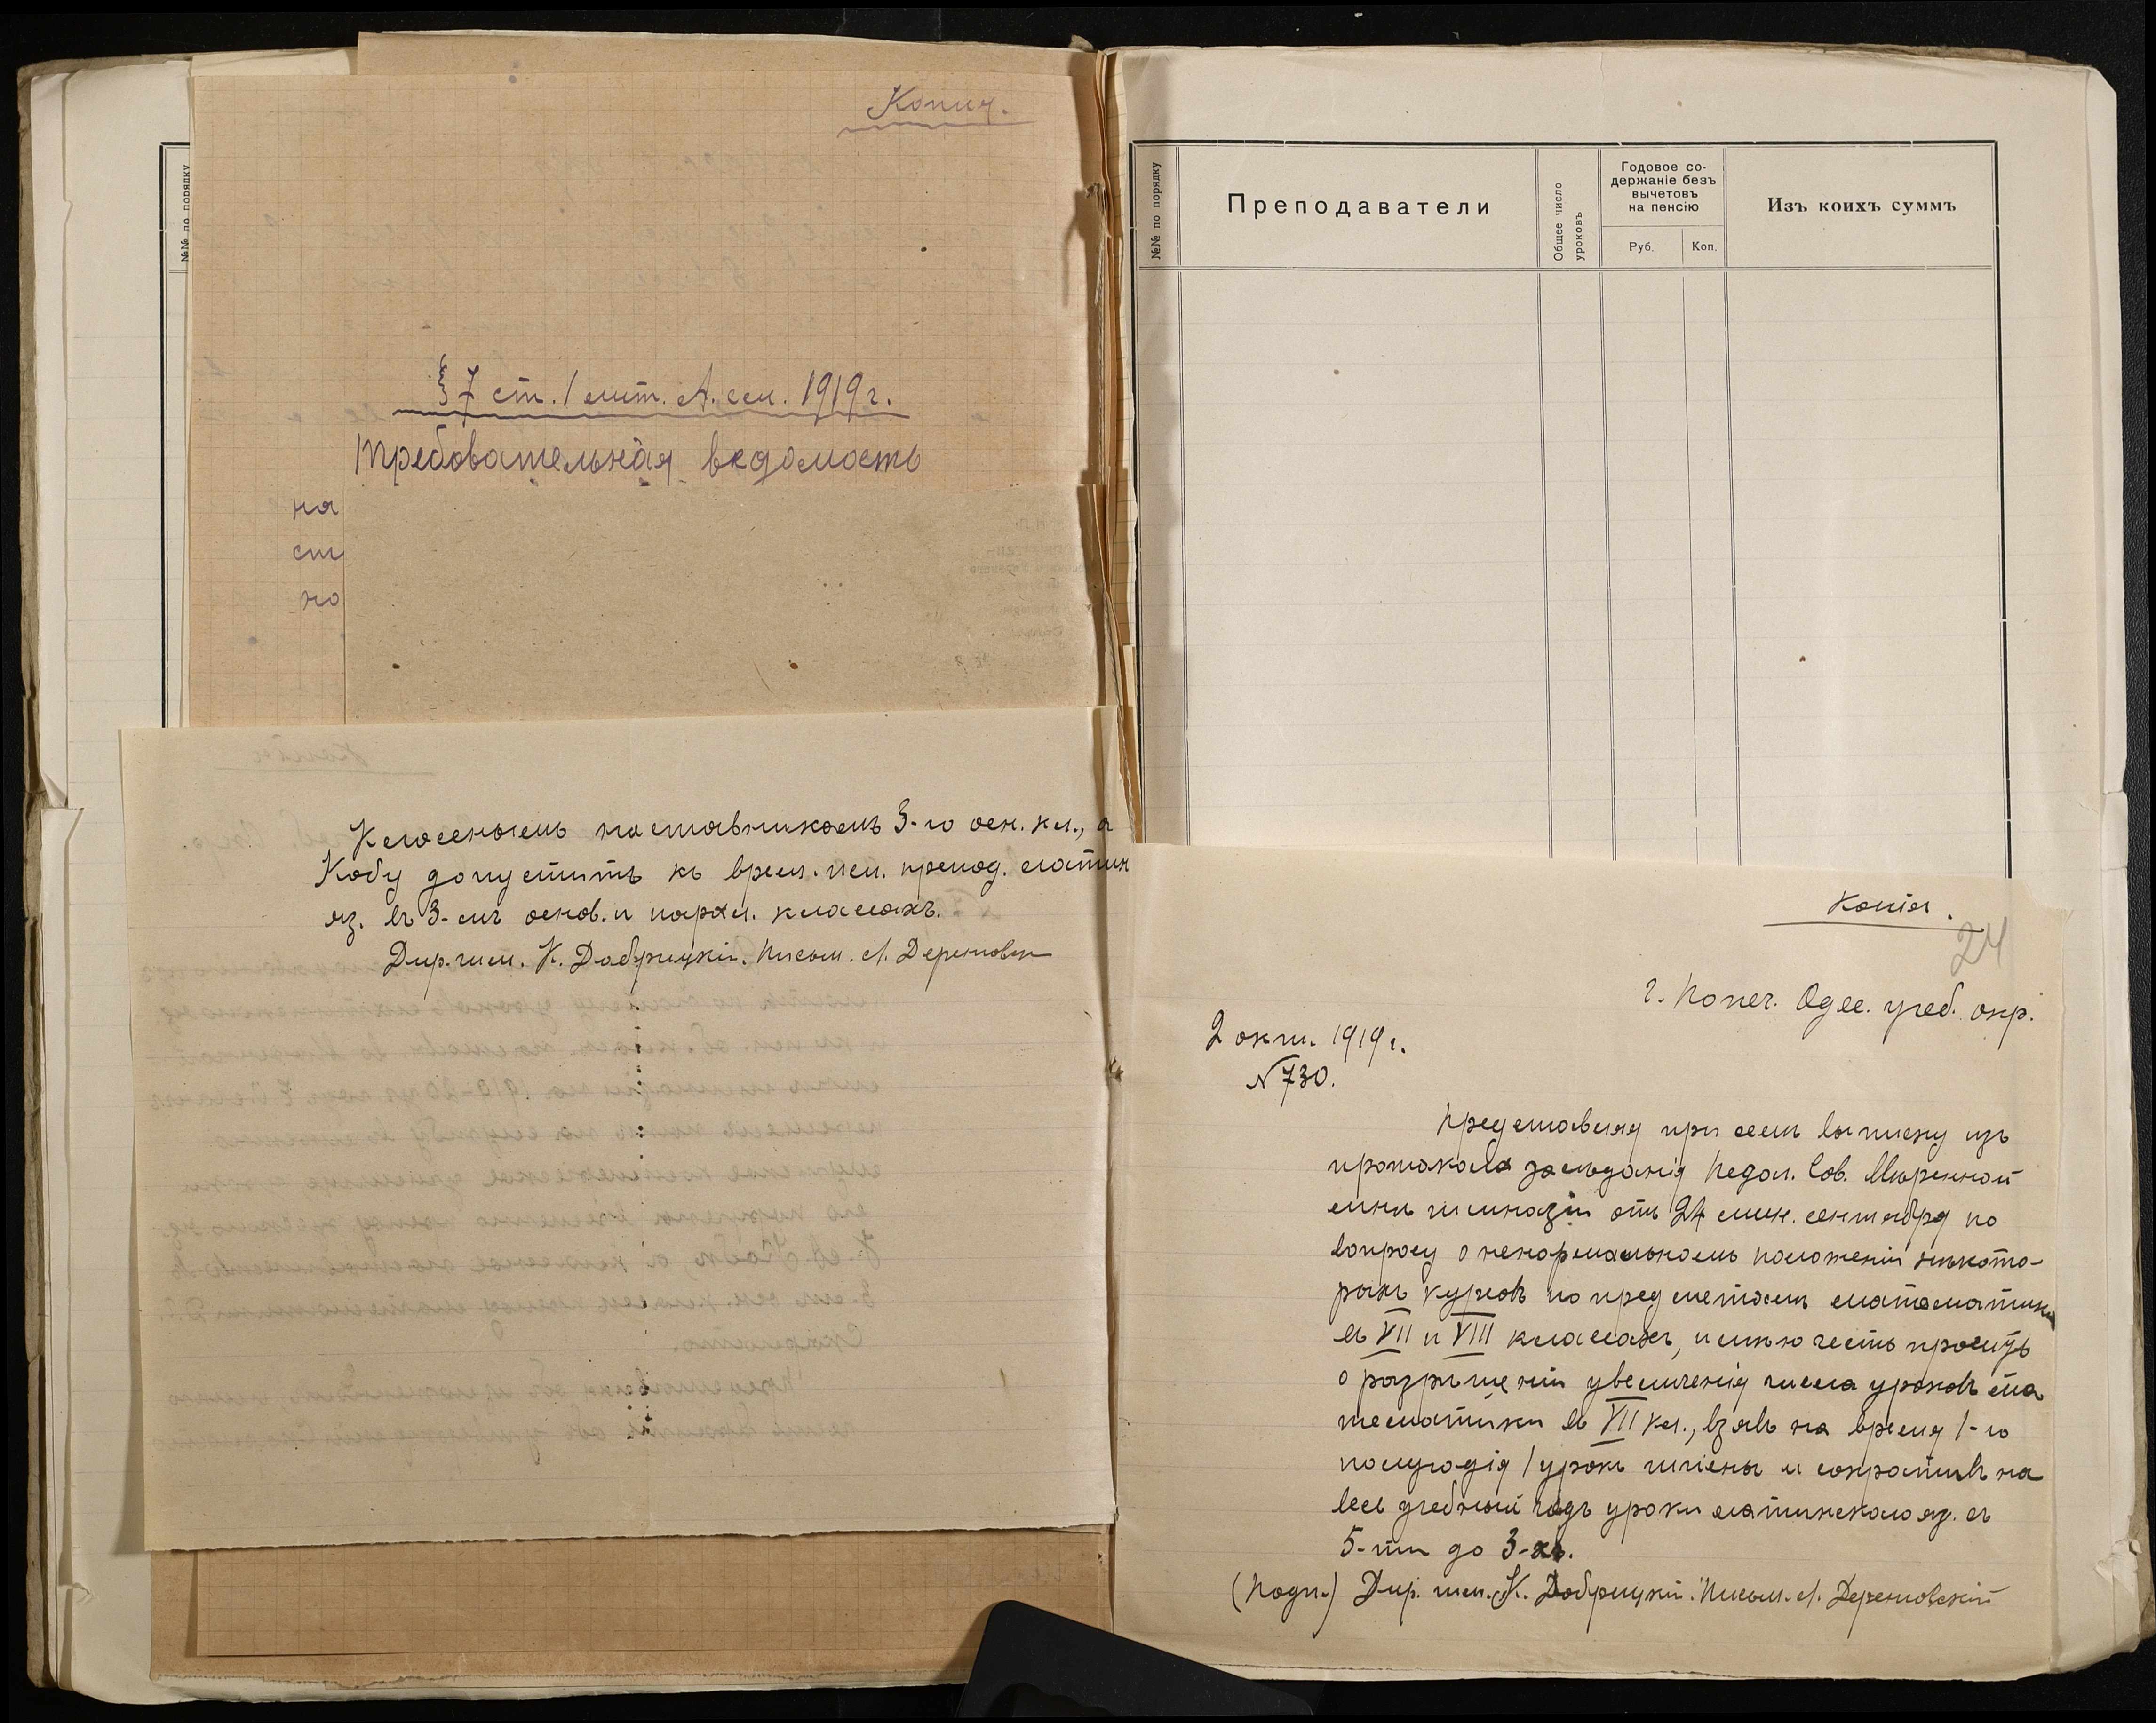 №№ по порядку
Копия.
§ 7 ст. 1 лит. А. см. 1919 г.
Требовательная ведомость
на
ст
но
Класснымъ наставникомъ 3-го осн. кл., а
Кобу допустить къ врем. исп. препод. латин
яз. въ 3-мъ основ. и парал. классахъ.
Дир. гим. К. Добрицкій. Письм. Л. Дереновск
№№ по порядку
Преподаватели
Общее число уроковъ
Годовое со-
держаніе безъ
вычетовъ
на пенсію
Руб.
Коп.
Изъ коихъ суммъ
Копія.
24
Г. Попеч. Одес. учеб. окр.
2 окт. 1919 г.
№ 730.
Представляя при семъ выписку изъ
протокола засѣданія Педаг. Сов.
гимназіи отъ 24 мин. сентября по
вопросу о ненормальномъ положеніи нѣкото-
рыхъ курсовъ по предметамъ математики
въ VII и VIII классахъ, имѣю честь просить
о разрѣшеніи увеличенія числа уроковъ ма
тематики въ VII кл., взявъ на время 1-го
полугодія 1 урокъ гигіены и сокративъ на
весь учебный годъ уроки латинскаго яз. съ
5-ти до 3-хъ.
(Подп.) Дир. гим. К. Добрицкій. Письм. Л. Дереновскій